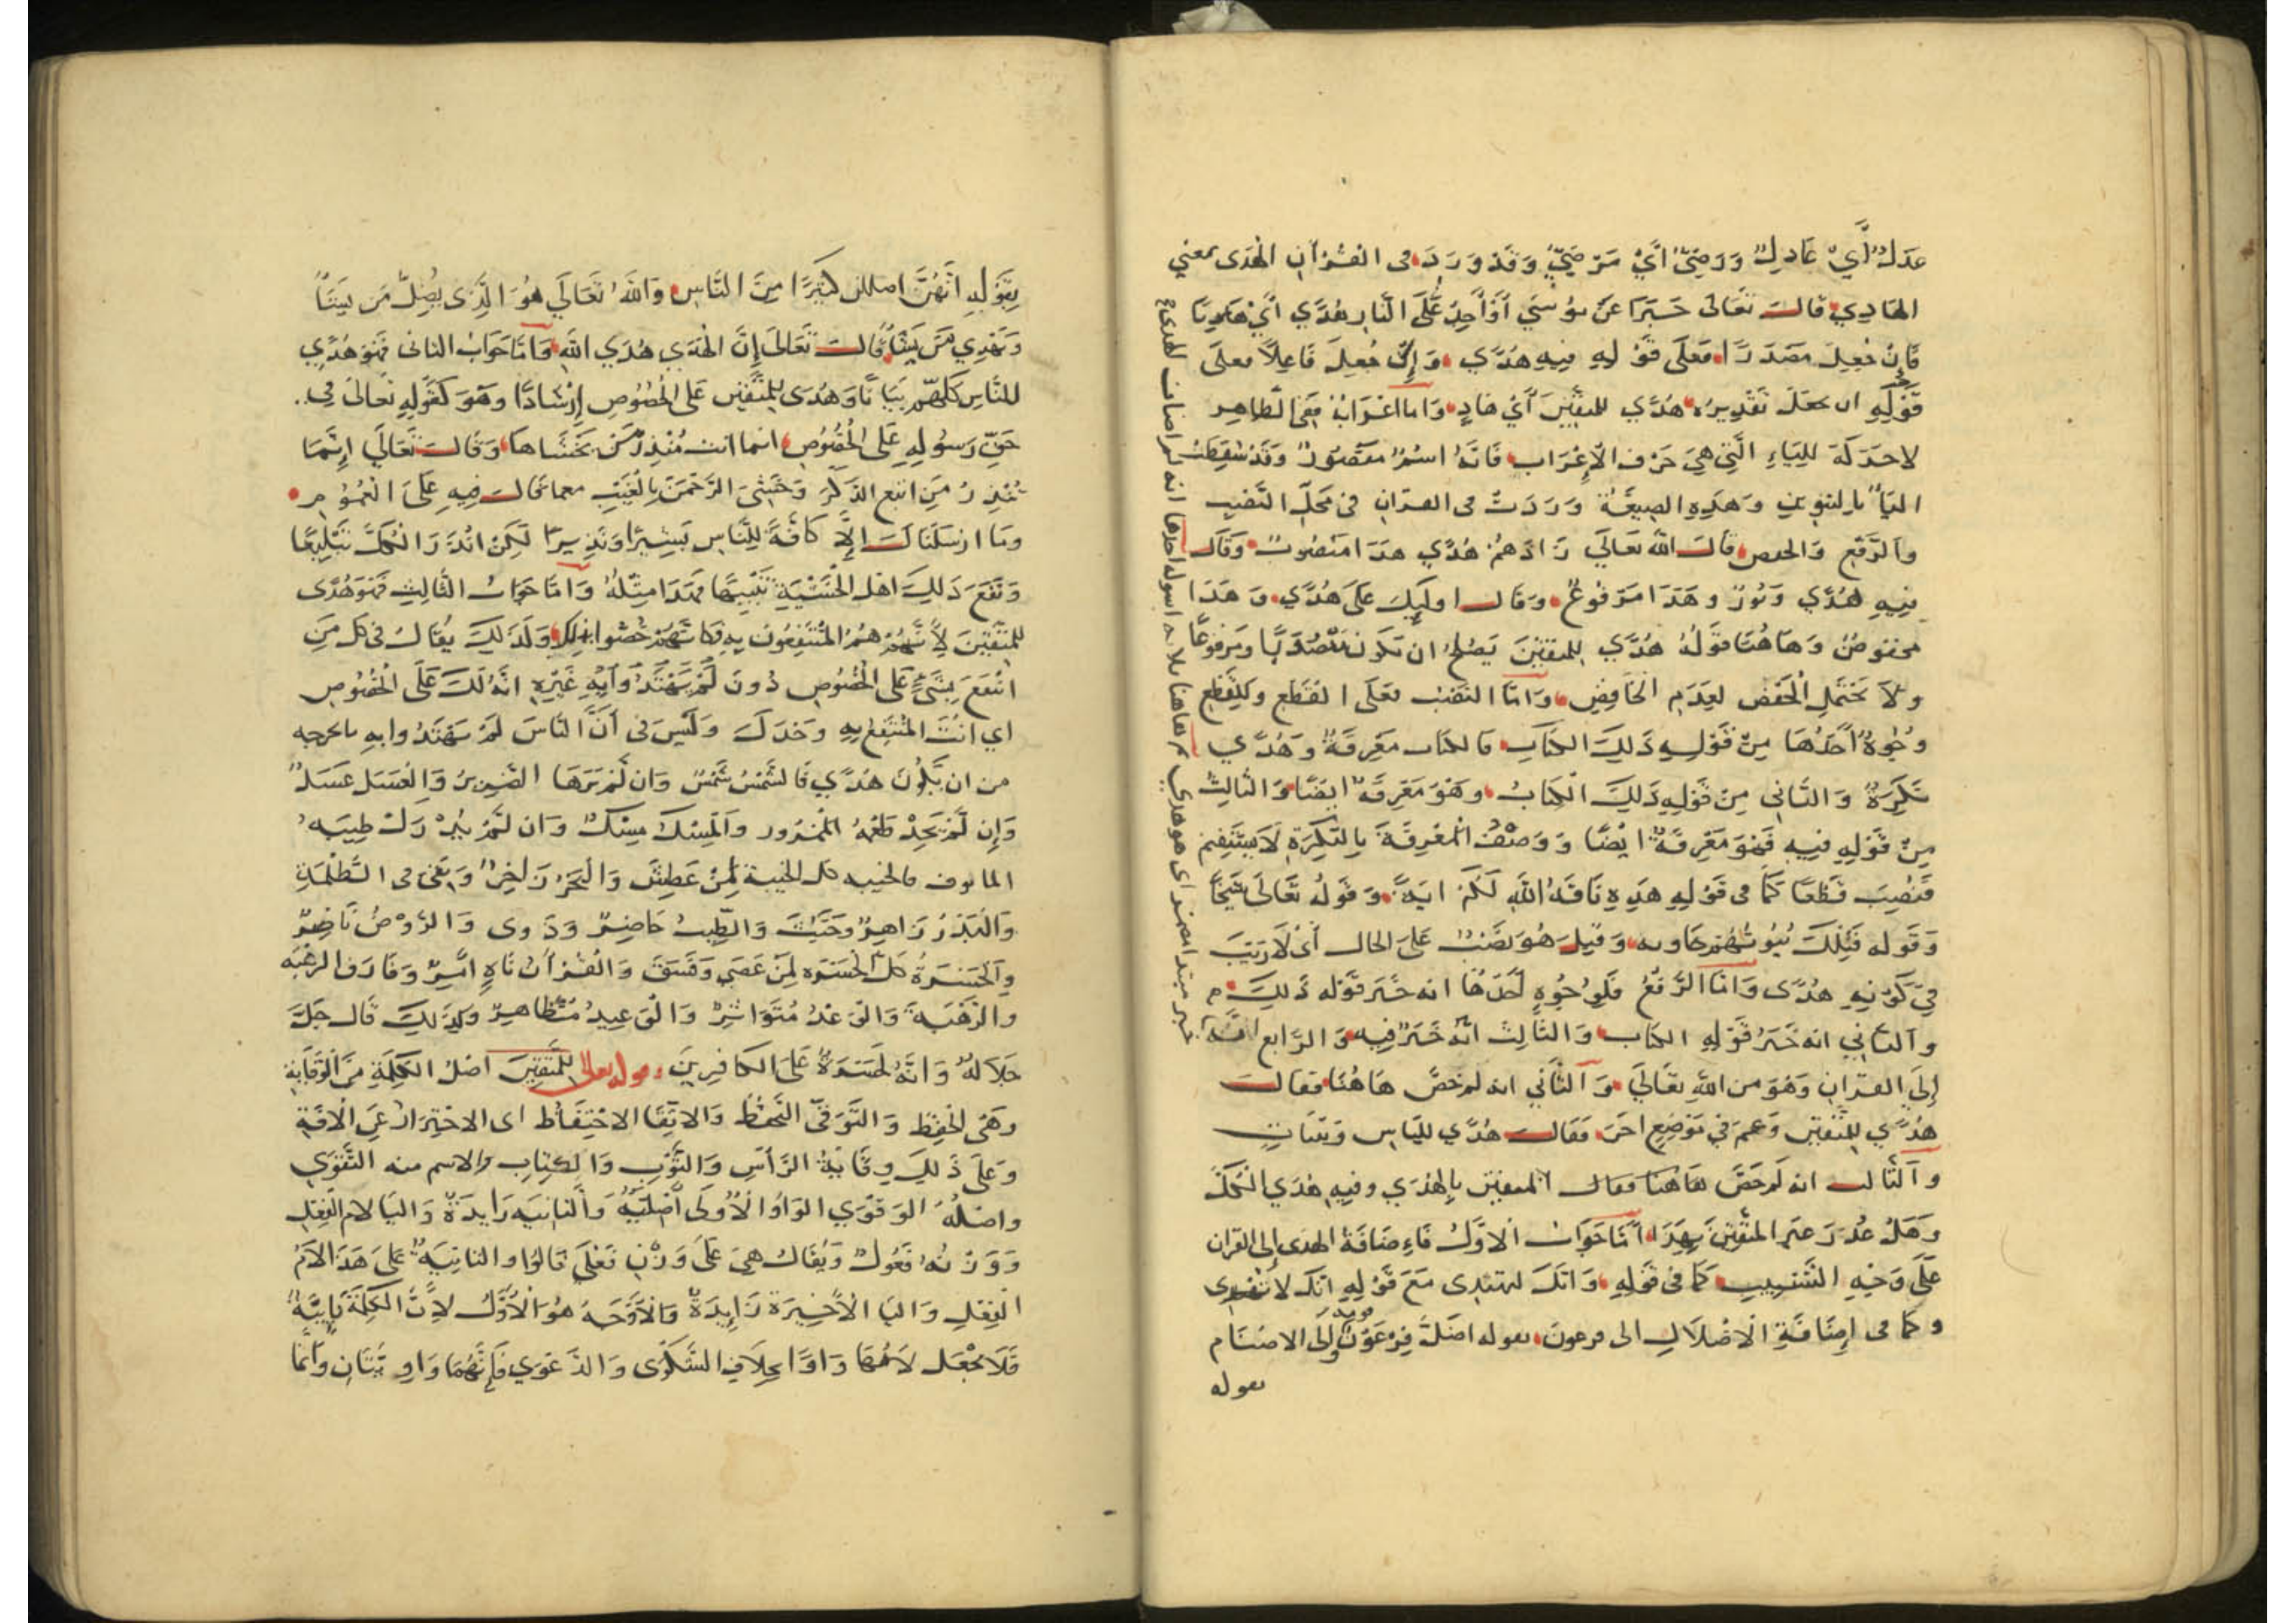 عَدْلٌ أَيْ عَادِلٌ وَرَضِيٌّ أَيْ مَرْضِيٌّ وَقَدْ وَرَدَ في القُرْآنِ الْهُدَى بمعنى
الهَادِي قَالَ تَعَالَى خَبَرًا عَنْ مُوسَى أَوْ أَجِدُ عَلَى النَّارِ هُدًي أَيْ هَادِيًا
فَإِنْ جُعِلَ مَصْدَرًا فَعَلَى قَوْلِهِ فِيهِ هُدًي وَإِنْ جُعِلَ فَاعِلًا فعلَى
قَوْلِهِ ان يجعَلَ تَقْدِيرُهُ هُدًي للمتَّقِينَ أَيْ هَادٍ وَاما اعْرَابُهُ فَفِي الظاهِر
لا حَرَكَةَ لليَاءِ الَّتِي هِيَ حَرْف الْإِعْرَابِ فَانَّهُ اسْمٌ مَقْصُورٌ وَقَدْ سَقَطَتْ
اليَاءُ بالتنوينِ وَهَذِهِ الصِيغَةُ وَرَدَتْ في القرَانِ في مَحَلِّ النَّصْبِ
وَالرَّفْعِ وَالخفض قَالَ اللهُ تَعَالَى زَادَهُمْ هُدًي هَذَا مَنْصُوبٌ وَقَالَ
فِيهِ هُدًي وَنُورٌ وهَذَا مَرْفُوعٌ وَقَالَ اولَئِكَ عَلَى هُدًي وَهَذَا
مَخفوضٌ وَهَاهُنَا قَوْلُهُ هُدًي للمتقِينَ يَصْلُحُ ان تكون مَنْصُوبًا وَمَرْفُوعًا
وَلَا يَحْتَمِلُ الْخَفْضَ لِعَدَمِ الْخَافِضِ وَامَّا النَّصْبُ فَعَلَى القَطْعِ وَلِلْقَطْعِ
وُجُوهٌ أَحَدُهَا مِنْ قَوْلِهِ ذَلِكَ الكتَاب فالكتاب مَعْرِفَةٌ وَهُدًي
نَكِرَةٌ وَالثَّانِي مِنْ قَوْلِهِ ذَلِكَ الْكِتَابُ وهُوَ مَعْرِفَةٌ ايضًا وَالثالِثُ
مِنْ قَوْلِهِ فِيهِ فَهُوَ مَعْرِفَةٌ ايْضًا وَوَصْفُ الْمَعْرِفَةَ بِالنَّكِرَةِ لَا يَسْتَقِيمُ
فَنُصِبَ قَطْعًا كَمَا في قَوْلِهِ هَذِهِ نَاقَةُ اللهِ لَكُمْ ايَةً وَقَوْلُهُ تَعَالَى شَيْخًا
وَقَوله فَتِلْكَ بُيُوتُهُمْ خَاويه وَقِيلَ هُوَ نَصْبٌ عَلَى الحال أَيْ لَا رَيْبَ
فِي كَوْنِهِ هُدًى وَامَّا الرَّفْعُ فَلِوُجُوهٍ أَحَدُهَا انه خَبَرُ قَوْله ذَلِكَ
وَالثاني انه خَبَرُ قَوْلِهِ الكتاب وَالثَّالِثُ انَّهُ خَبَرُ فِيهِ وَالرَّابع
إِلَى القرَانِ وَهُوَ من اللهِ تعَالَى وَالثَّانِي انه لم خصَّ هَاهُنَا فقال
هُدًي لِلْمُتَّقِينَ وَعَمَّ فِي مَوْضِعٍ اخَرَ فَقَالَ هُدًي للنَّاسِ وَبَيِّنَاتٍ
وَالثَّالث انه لِمَ خَصَّ هَاهُنَا فقال المتقين بِالْهُدَي وفِيهِ هُدَي الْكُلِّ
وَهَلْ عُذِرَ غير المتَّقِينَ بِهَذَا أَمَّا جَوَابُ الاوَّلِ فَاِضَافَةُ الهدى إِلى القران
عَلَى وَجْهِ التَّسْبِيبِ كَمَا في قَوْلِهِ وَانَّكَ لتهتدى مَعَ قَوْلِهِ انَّكَ لا تَهْدِى
وكما في إِضَافَةِ الْاضْلَالِ الى فرعونَ بقوله اضَلَّ فِرْعَوْنُ قومه وَإِلَى الاصْنَام
بقوله
بِقَوْلِهِ انَّهُنَّ اضللن كَثِيرًا مِنَ النَّاسِ وَاللهُ تَعَالَى هُوَ الَّذِى يُضِلُّ مَن يَشَاءُ
وَيَهْدِي مَنْ يَشَاءُ قَالَ تَعَالَى إِنَّ الْهُدَي هُدَي اللهِ وَامَّا جَوَابُ الثانى فَهُوَ هُدًي
للنَّاسِ كلهِّم بَيَانًا وَهُدًى لِلْمُتَّقِين عَلَى الْخُصُوصِ إِرْشَادًا وهُوَ كَقَوْلِهِ تَعَالَى فِي
حَقِّ رَسُولِهِ عَلَى الْخُصُوصِ انما انت مُنْذِرُ مَنْ يَخْشَاهَا وَقَالَ تَعَالَى إِنَّمَا
تُنْذِرُ مَنِ اتبع الذِّكْرَ وَخَشِيَ الرَّحْمَنَ بِالْغَيْبِ مع ما قال فِيهِ عَلَى الْعُمُوم
وَمَا ارْسَلْنَاكَ إِلَّا كَافَّةً لِلنَّاسِ بَشِيرًا وَنَذِيرًا لَكِنْ انْذَرَ الْكُلَّ تَبْلِيغًا
وَنَفَعَ ذَلِكَ اهْلَ الْخَشْيَةِ تَنْبِيهًا فهَذَا مِثْلُهُ وَامَّا جَوَابُ الثَّالِثِ فَهُوَ هُدًى
لِلْمُتَّقِينَ لِأَنَّهُمْ هُمُ الْمُنْتَفِعُونَ بِهِ فَكَأَنَّهُمْ خُصُّوا بِذلك وَلِذَلِكَ يُقَالُ فِي كل مَنِ
انْتَفَعَ بِشَيْءٍ عَلَى الْخُصُوصِ دُونَ غَيْرِهِ انَّهُ لَكَ عَلَى الْخُصُوصِ
اي انْتَ الْمُنْتَفِعُ بِهِ وَحْدَكَ وَلَيْسَ في أَنَّ النَّاسَ لَمْ يَهْتَدُوا بِهِ ما يخرجه
من ان يَكُونَ هُدًي فَالشَّمْسُ شَمْسٌ وَان لَمْ يَرَهَا الضَّرِيرُ وَالْعَسَل عَسَلٌ
وَإِن لَمْ يَجِدْ طَعْمَهُ الْمَمْرُور وَالْمِسْك مِسْكٌ وَان لَمْ يُدْرِكْ طِيبَهُ
المأنوف فالخيبه كل الخيبة لِمَنْ عَطِشَ وَالْبَحْرُ زَاخِرٌ وَبَقِيَ في الظُّلْمَةِ
وَالْبَدْرُ زَاهِرٌ وَخَبُثَ وَالطِّيبُ حَاضِرٌ وَذَوى وَالرَّوْضُ نَاضِرٌ
وَالْحَسْرَةُ كلّ الحَسْرَه لِمَنْ عَصَي وَفَسَقَ وَالْقُرْآنُ نَاهٍ آمِرٌ وَفَارَقَ الرغْبَه
وَالرَّهْبَةَ وَالْوَعْدُ مُتَوَاتِرٌ وَالْوَعِيدُ مُتَظَاهِرٌ وَكَذَلِكَ قَال جَلَّ
جَلَالُهُ وَانَّهُ لَحَسْرَةٌ عَلَى الكَافِرِينَ قوله تعالى لِلْمُتَّقِينَ اصْلُ الكَلِمَةِ مِنَ الْوِقَايَةِ
وَهِيَ الْحِفْظُ وَالتَّوَقِّي التَّحَفُّظُ وَالاتِّقَا الاحْتِفَاظ اى الاحْتِرَازُ عَنِ الْآفَةِ
وَعَلَى ذَلِكَ وِقَايَةُ الرَّأْسِ وَالثَّوْبِ وَالكِتَابِ والاسم منه التَّقْوَي
واصْلُهُ الْوَقْوَي الوَاوُ الْأُولَى أَصْلِيَّةٌ وَالثانِيَه زَايدَةٌ وَاليَا لام الفِعْلِ
وَوَزْنُهُ فَعُولٌ وَيُقَالُ هِيَ عَلَى وَزْنِ فَعْلَى قَالُوا والثانِيَةُ عَلَى هَذَا لَامُ
الْفِعْلِ وَاليَا الْأَخِيرَة زَايِدَةٌ وَالْأَوْجَهُ هُوَ الْأَوَّلُ لِأَنَّ الكَلِمَةَ يَائِيَّةٌ
فَلَا نجْعَل لَامَهَا وَاوًا بخِلَافِ الشَّكْوَى وَالدَّعْوَي فَإِنَّهُمَا وَاوِيَّتَانِ وَأَمَّا